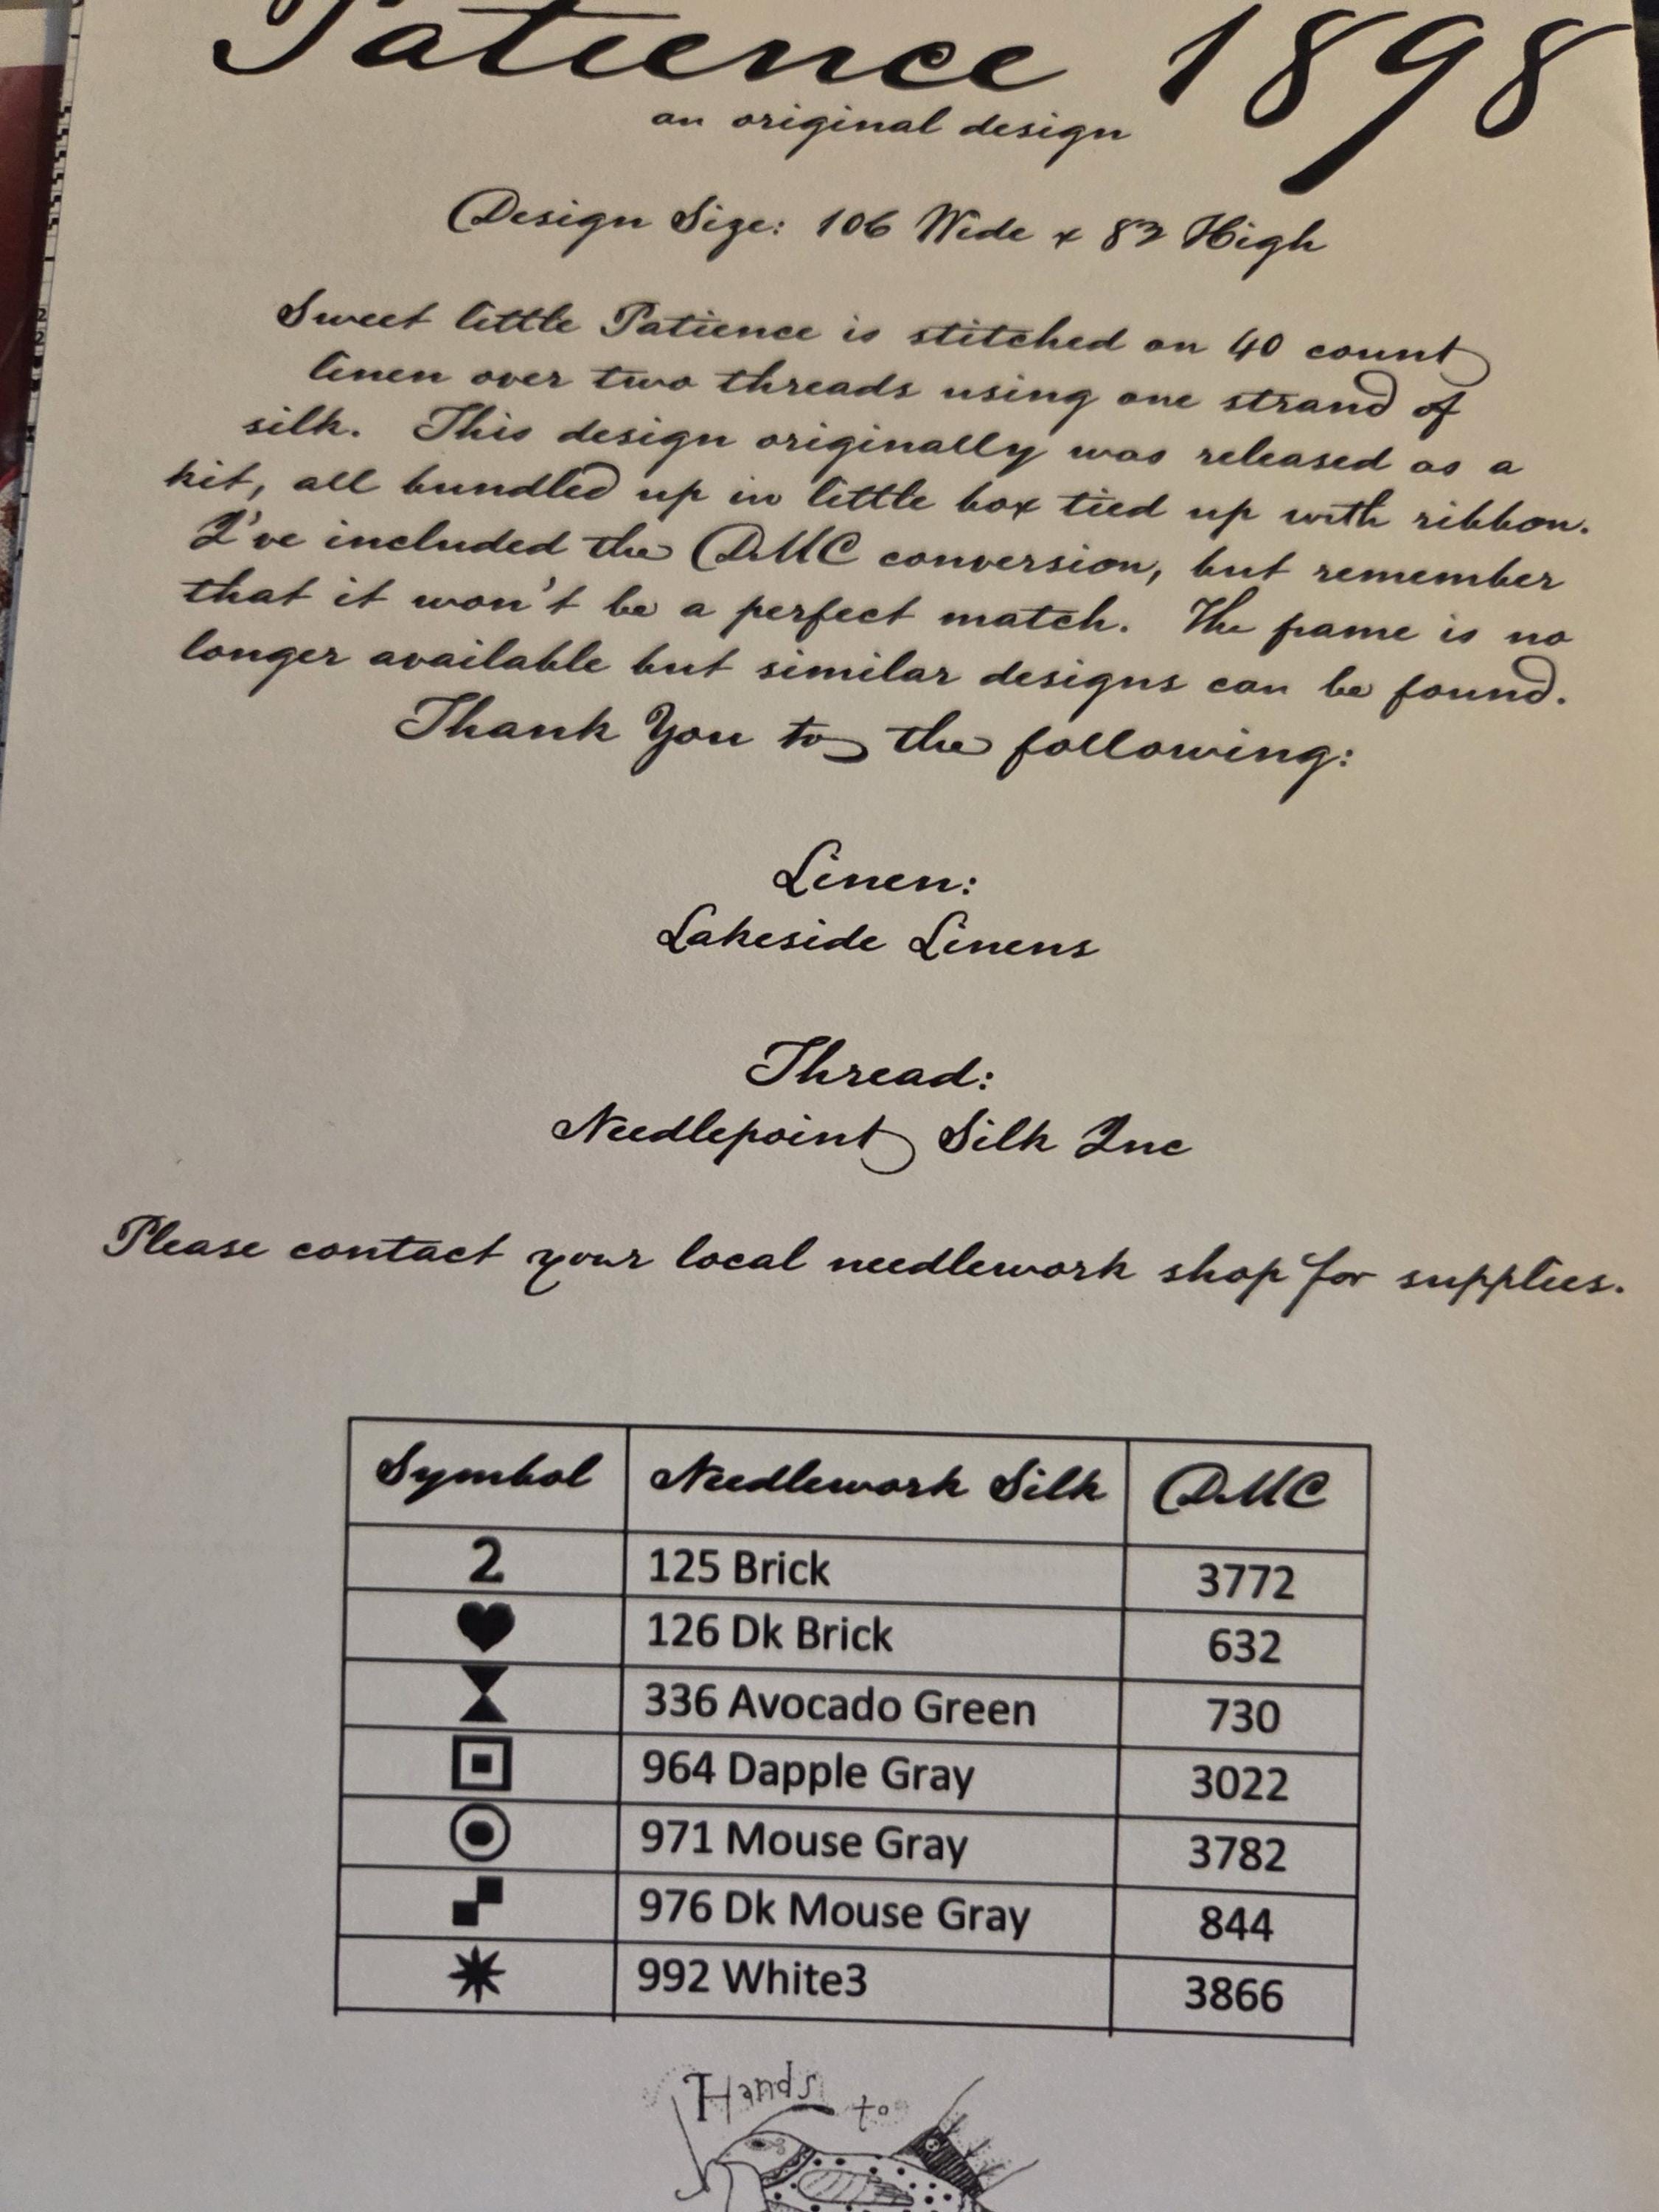 Patience 1898
an original design
Design Size: 106 Wide x 82 High
Sweet little Patience is stitched on 40 count
linen over two threads using one strand of
silk. This design originally was released as a
kit, all bundled up in little box tied up with ribbon.
I've included the DMC conversion, but remember
that it won't be a perfect match. The frame is no
longer available but similar designs can be found.
Thank You to the following:
Linen:
Lakeside Linens
Thread:
Needlepoint Silk Inc
Please contact your local needlework shop for supplies.
Symbol Needlework Silk DMC
2 125 Brick 3772
♥ 126 Dk Brick 632
336 Avocado Green 730
964 Dapple Gray 3022
971 Mouse Gray 3782
976 Dk Mouse Gray 844
992 White3 3866
Hands to